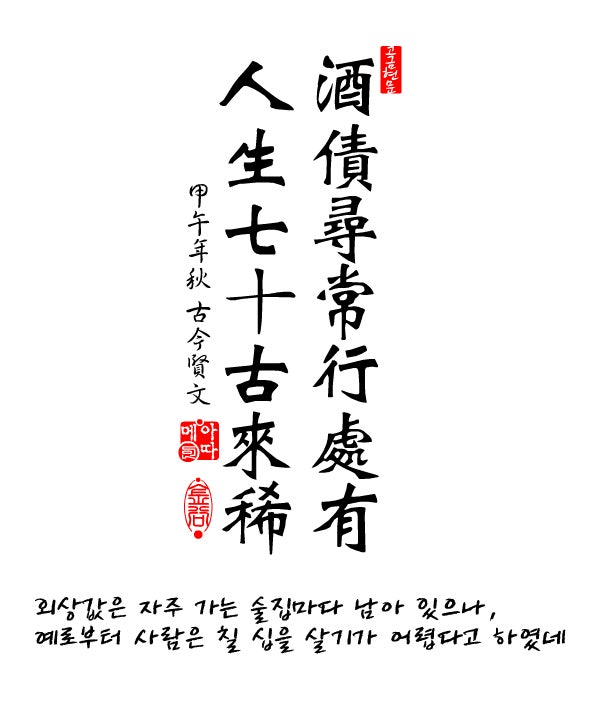 고금현문
酒債尋常行處有
人生七十古來稀
甲午年秋 古今賢文
아따
메뤼
외상값은 자주 가는 술집마다 남아 있으나,
예로부터 사람은 칠 십을 살기가 어렵다고 하였네